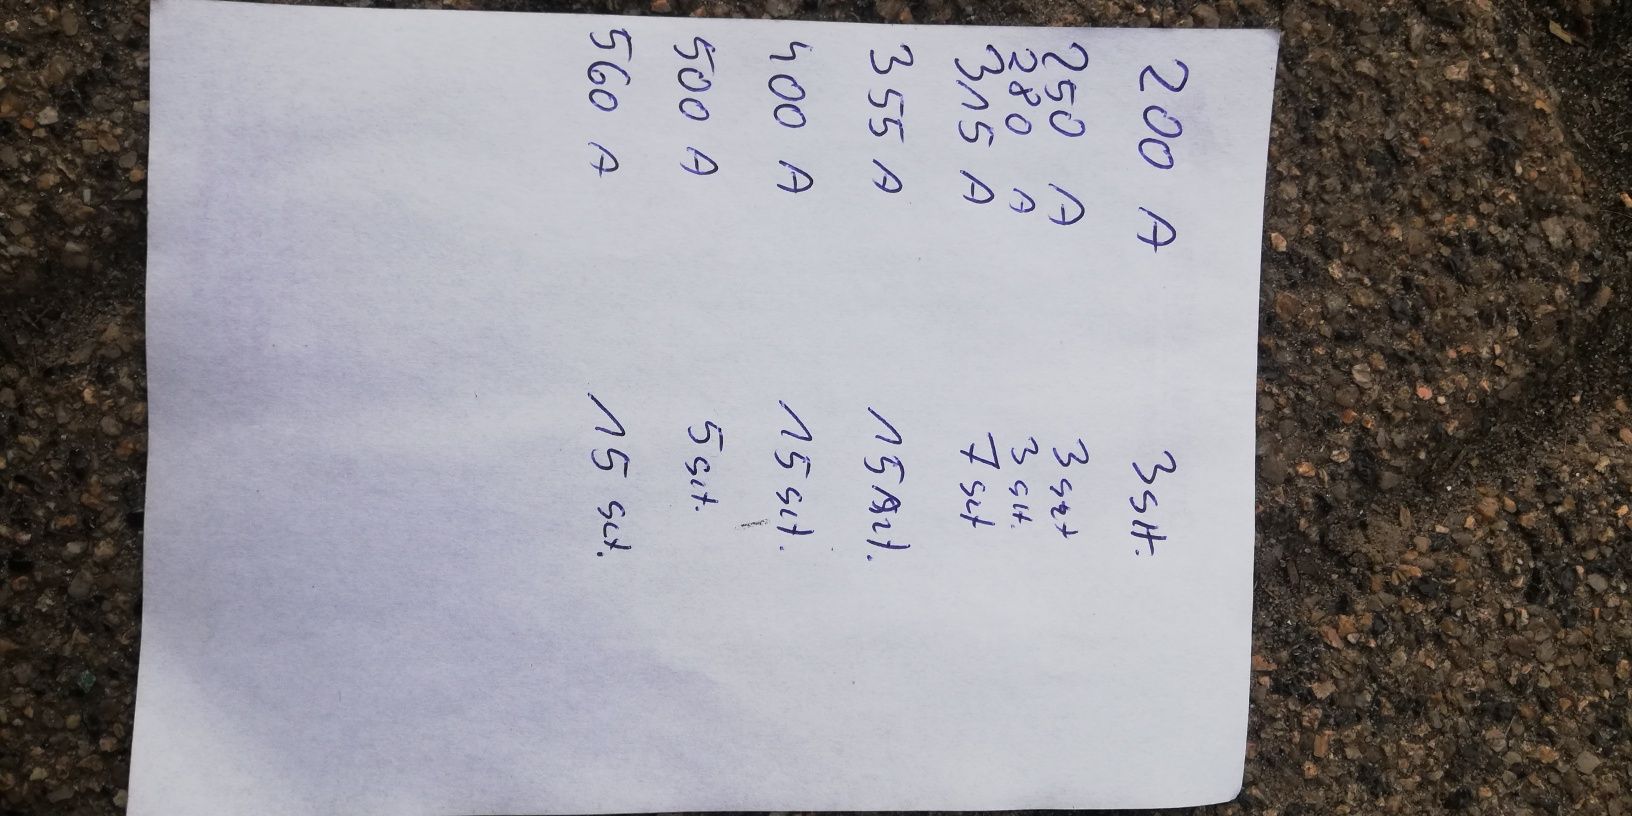 200 A 3 szt.
250 A 3 szt
280 A 3 szt.
315 A 7 szt
355 A 15 szt.
400 A 15 szt.
500 A 5 szt.
560 A 15 szt.